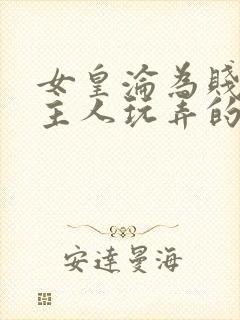 女皇淪為賤
主人玩弄的
安達曼海